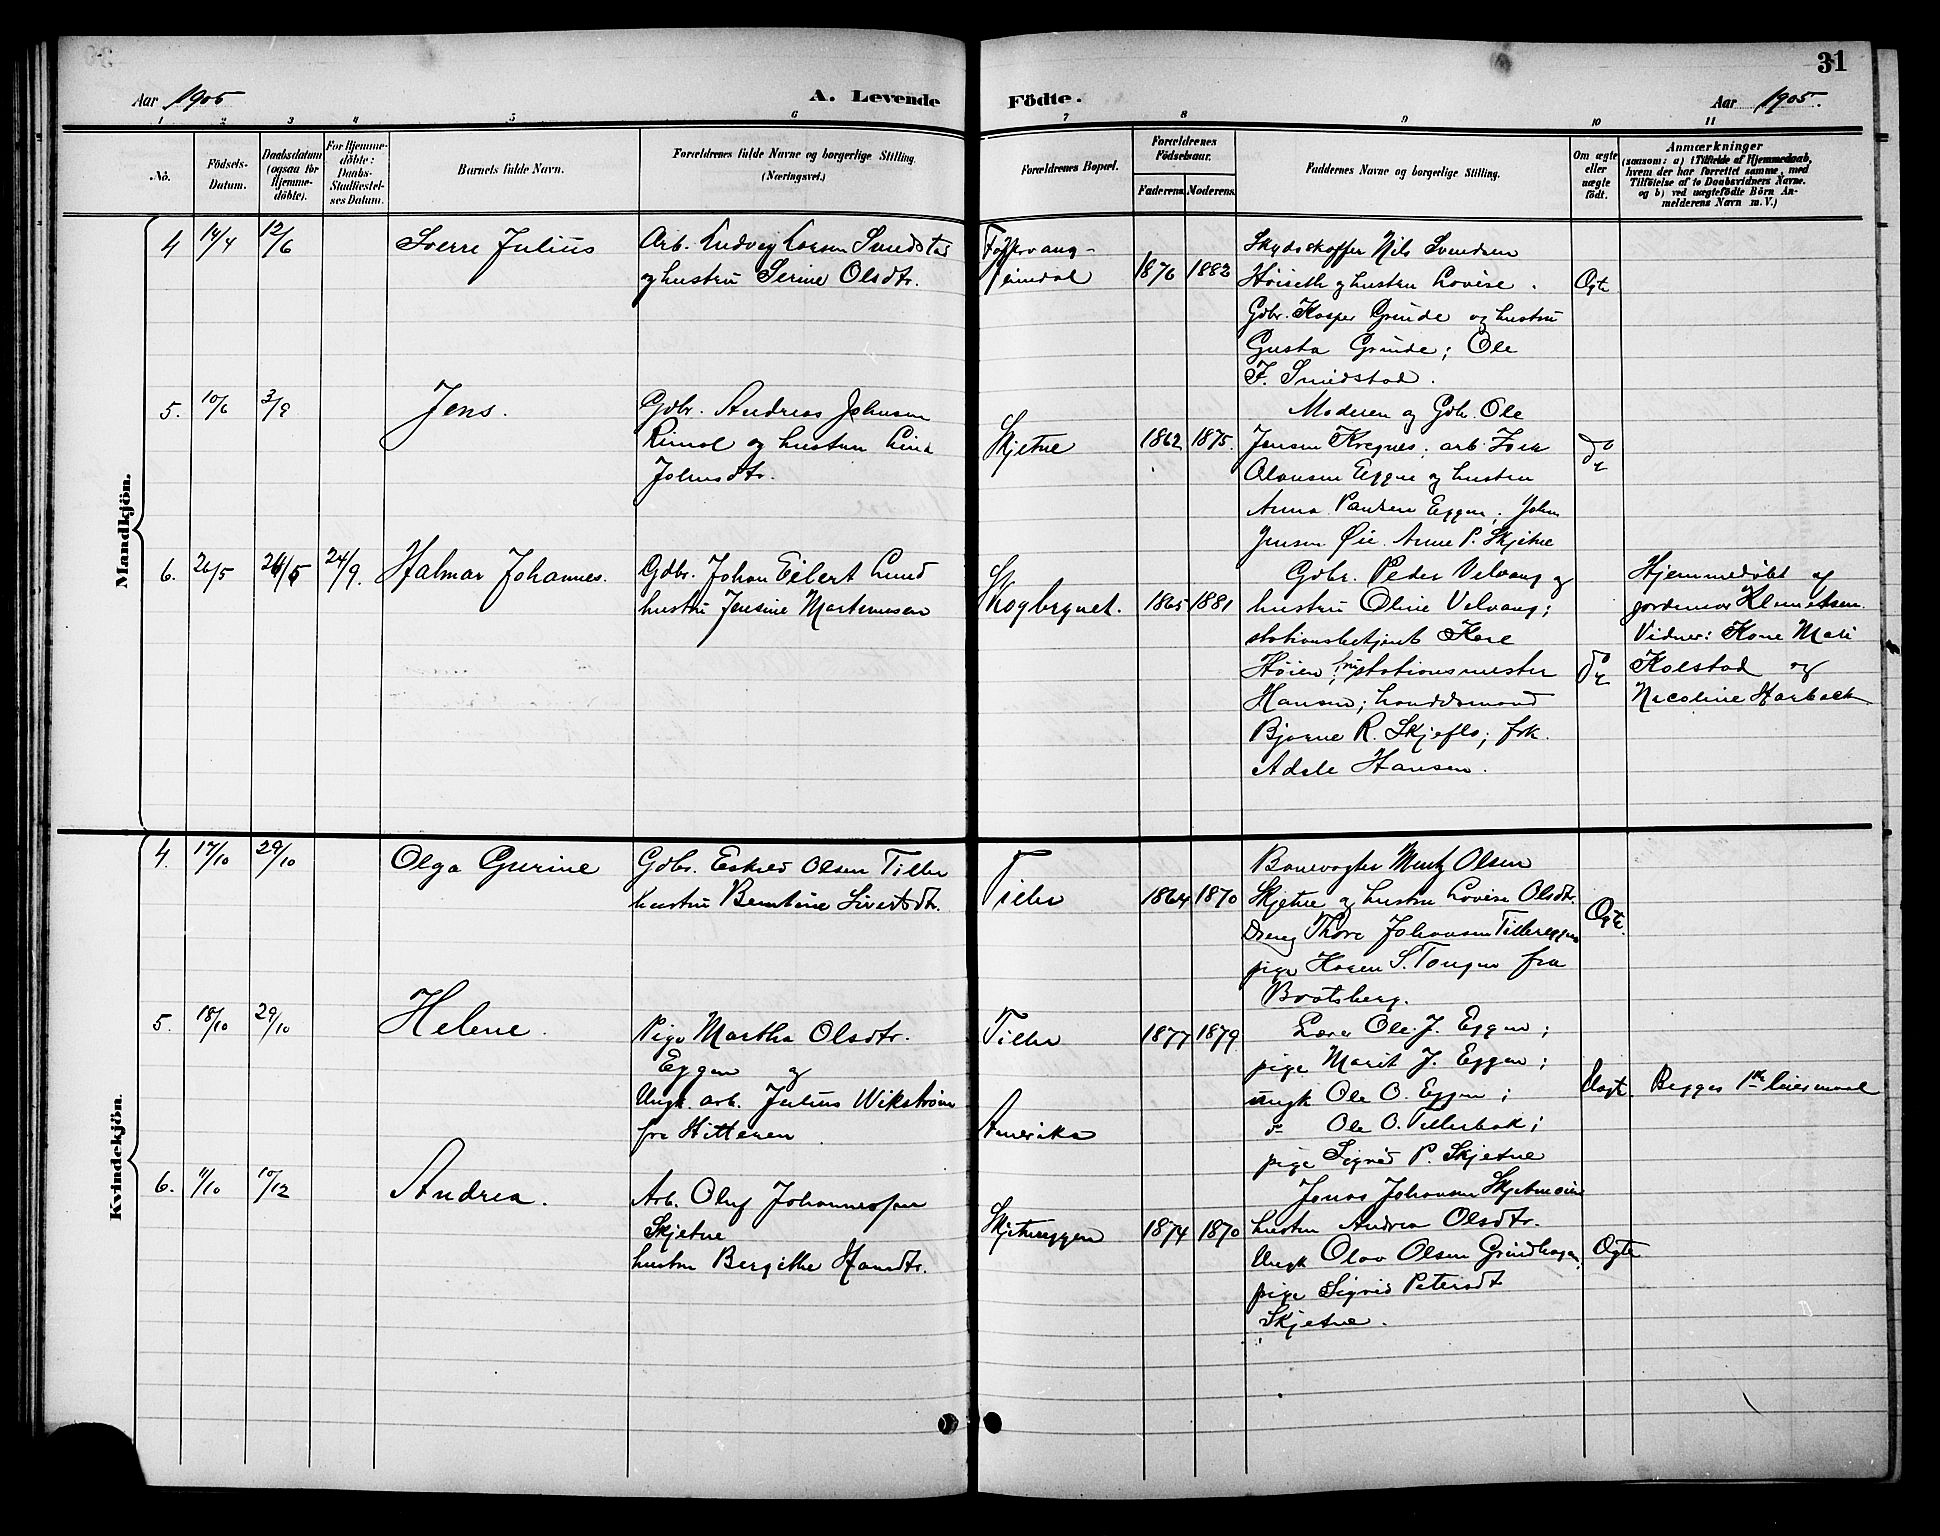 31
Aar 1905
A. Levende
Födte.
Aar 1905.
1 2 3 4 5 6 7 8 9 10 11
No.
Födsels-
Datum.
Daabsdatum
(ogsaa for
Hjemme-
döbte).
For Hjemme-
döbte:
Daabs-
Stadfæstel-
ses Datum.
Barnets fulde Navn.
Forældrenes fulde Navne og borgerlige Stilling.
(Næringsvei.)
Forældrenes Bopæl.
Forældrenes
Födselsaar.
Faderens.
Moderens.
Faddernes Navne og borgerlige Stilling.
Om ægte
eller
uægte
födt.
Anmærkninger
(saasom: a) i Tilfælde af Hjemmedaab,
hvem der har forrettet samme, med
Tilföielse af to Daabsvidners Navne.
og b) ved uægtefödte Börn An-
melderens Navn m. V.)
Mandkjön.
4 14/4 12/6
Sverre Julius
Arb. Ludvig Larsen Smidstad
og hustru Serine Olsdtr.
Heimdal
1876 1882
Skydsskaffer Nils Svendsen
Höiseth og hustru Lovise.
Gdbr. Kasper Grinde og hustru
Gusta Grinde; Ole
F. Smidstad.
Ægte
5. 10/6 3/9
Jens.
Gdbr. Andreas Johnsen
Rimol og hustru Lina
Johnsdtr.
Skjetne
1862 1875.
Moderen og Gdbr. Ole
Jensen Kregnes; arb.
Olausen Eggen og hustru
Anna Paulsen Eggen; John
Jensen Øie. Anne P. Skjetne
do
6. 26/5 26/5 24/9.
Halmar Johannes.
Gdbr. Johan Eilert Lund
hustru Jensine Martinussen
Skogbrynet.
1865 1881
Gdbr. Peder Velvang og
hustru Oline Velvang;
stationsbetjent Kare
Höien; fru stationsmester
Hansen; landdsmand
Bjarne R. Skjeflo; frk.
Adele Hansen.
do
Hjemmedöbt af
jordemor Klemetsen.
Vidner: Kone Mali
Kolstad og
Nicoline Harbak
Kvindekjön.
4. 17/10 29/10
Olga Gurine
Gdbr. Eskild Olsen Tiller
hustru Berntine Sivertsdtr.
Tiller
1864 1870
Banevogter Mentz Olsen
Skjetne og hustru Lovise Olsdtr.
Dreng Thore Johansen Tillereggen
pige Karen S. Tangen fra
Bratsberg.
Ægte.
5. 18/10 29/10
Helene.
Pige Martha Olsdtr.
Eggen og
Ungk. arb. Julius Wikström
fra Hitteren
Tiller
Amerika
1877 1879
Lærer Ole J. Eggen;
pige Marit J. Eggen;
ungk Ole O. Eggen;
do Ole O. Tillerbak;
pige Sigrid P. Skjetne
Uægt.
Begges 1ste leiermaal
6. 11/10 10/12
Andrea.
Arb. Oluf Johannessen
Skjetne
hustru Bergitte Hansdtr.
Skjetneeggen
1874 1870
Jonas Johansen Skjetneöien
hustru Andrea Olsdtr.
Ungk Olav Olsen Grindhagen
pige Sigrid Petersdt
Skjetne.
Ægte